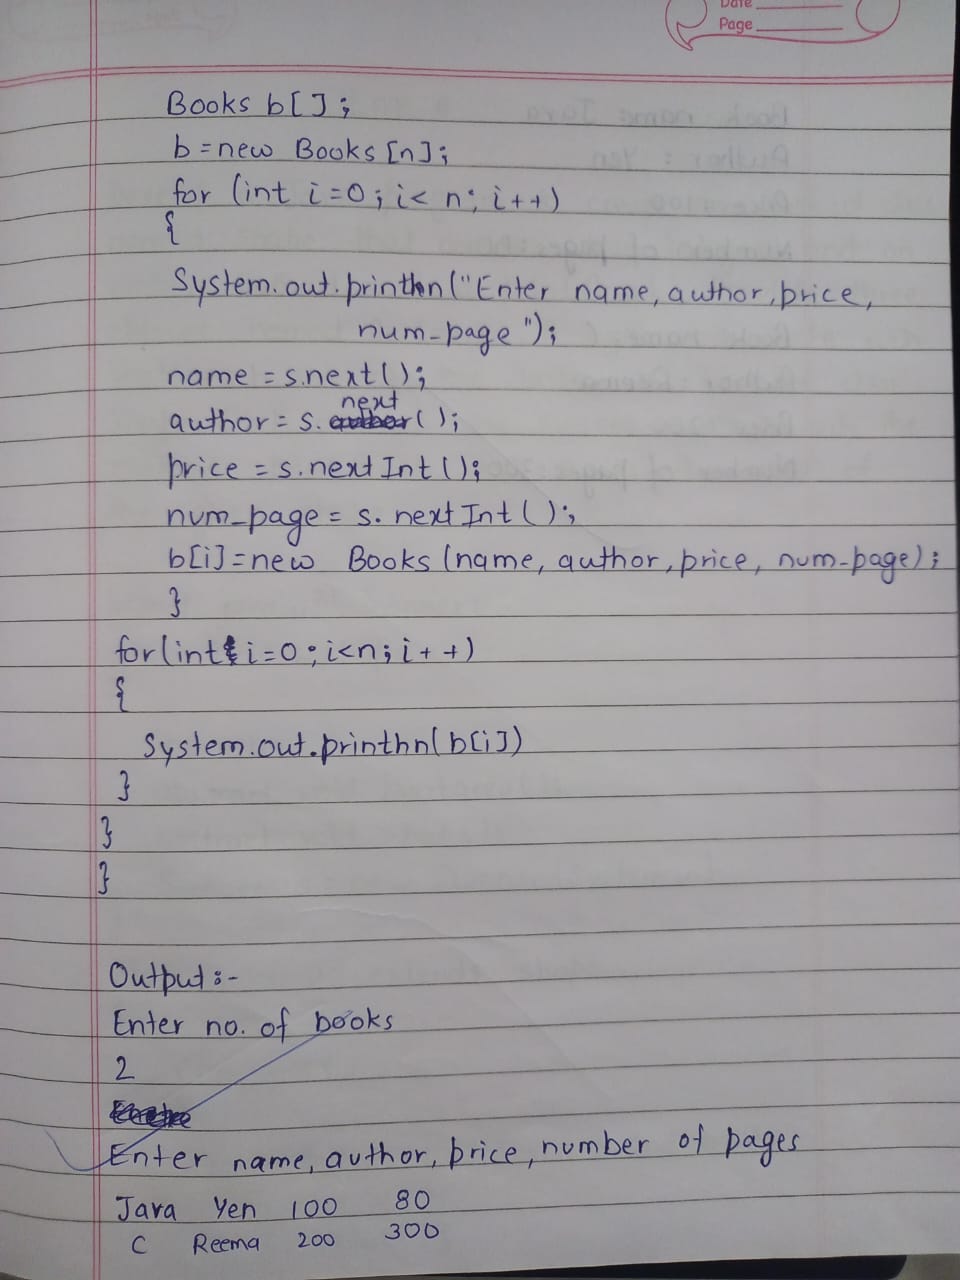 Date
Page
Books b[];
b=new Books[n];
for (int i=0; i< n; i++)
{
System.out.println("Enter name, author, price,
num_page");
name = s.next();
next
author = s.author();
price = s.nextInt();
num_page = s. nextInt();
b[i]=new Books (name, author, price, num_page);
}
for(int i=0; i<n; i++)
{
System.out.println(b[i])
}
}
}
Output:-
Enter no. of books
2
Enter name, author, price, number of pages
Java Yen 100 80
C Reema 200 300